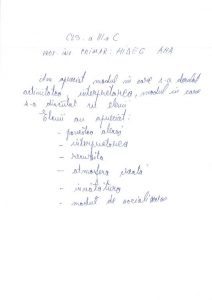 CLS. a III a C
PROF. INV. PRIMAR: HIDEG ANA
Am apreciat modul în care s-a derulat
activitatea interpretarea, modul în care
s-a discutat cu elevii
Elevii au apreciat:
- povestea aleasă
- interpretarea
- recuzita
- atmosfera creată
- invitația
- modul de socializare